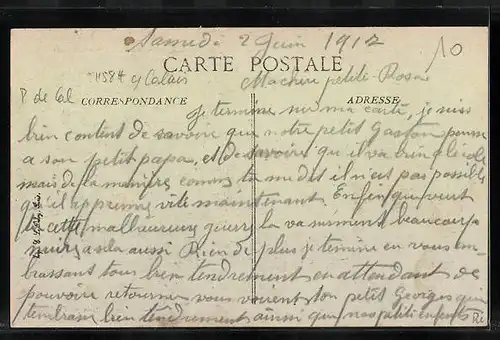 Samedi 2 Juin 1917
10
CARTE POSTALE
4584 Calais
P de Cal
Ma chère petite Rosa
CORRESPONDANCE
ADRESSE
Je termine sur ma carte, je suis
bien content de savoire que notre petit Gaston pense
a son petit papa, et de savoire qu'il va bien a l'école
mais de la manière comme tu me dit il n'est pas possible
qu'il apprenne vite maintenant. Enfin que veut
tu cette malheureuse guerre la vaiment beaucoup
nuire a sela aussi Rien de plus je termine en vous em-
brassant tous bien tendrement en attendant de
pouvoire retourner vous voir ton petit Georges qui
t'embrasse bien tendrement ainsi que nos petits enfants